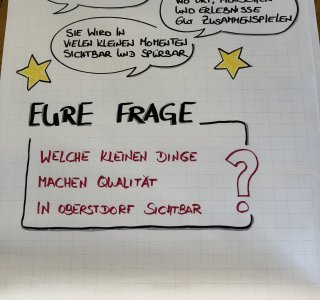 SIE WIRD IN
VIELEN KLEINEN MOMENTEN
SICHTBAR UND SPÜRBAR
WO ORT, MENSCHEN
UND ERLEBNISSE
GUT ZUSAMMENSPIELEN
EURE FRAGE
WELCHE KLEINEN DINGE
MACHEN QUALITÄT
IN OBERSTDORF SICHTBAR
?